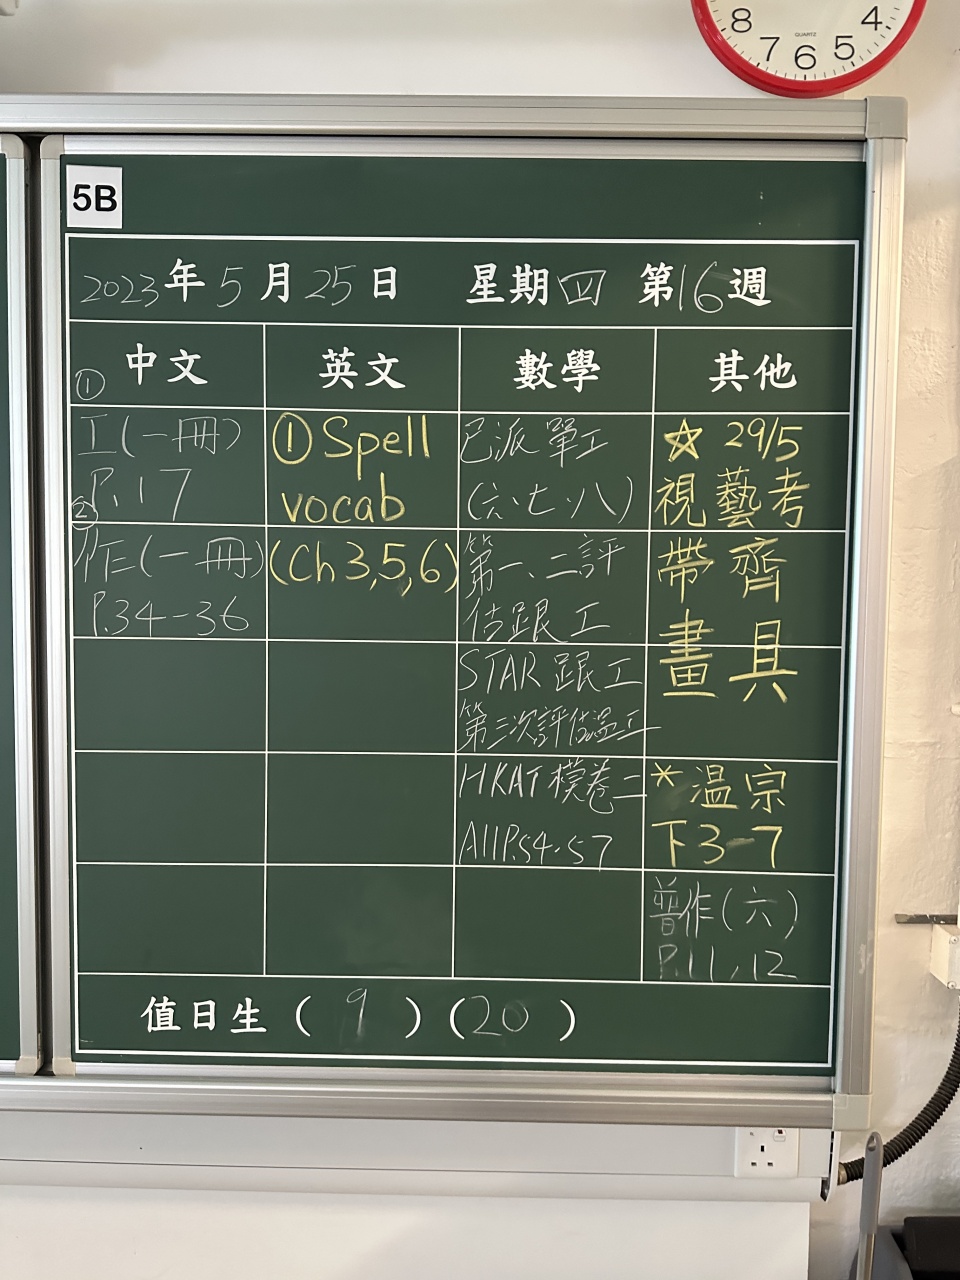 8 7 6 5 4
QUARTZ
5B
2023年5月25日 星期四 第16週
中文 英文 數學 其他
①
工(一冊)
P.17
②
作(一冊)
P.34-36
①Spell
vocab
(Ch 3,5,6)
已派單工
(六、七、八)
第一、二評
估跟工
STAR 跟工
第三次評估溫工
HKAT模卷二
AllP.54-57
☆ 29/5
視藝考
帶齊
畫具
*溫宗
下3-7
普作(六)
P.11,12
值日生 ( 9 ) (20 )